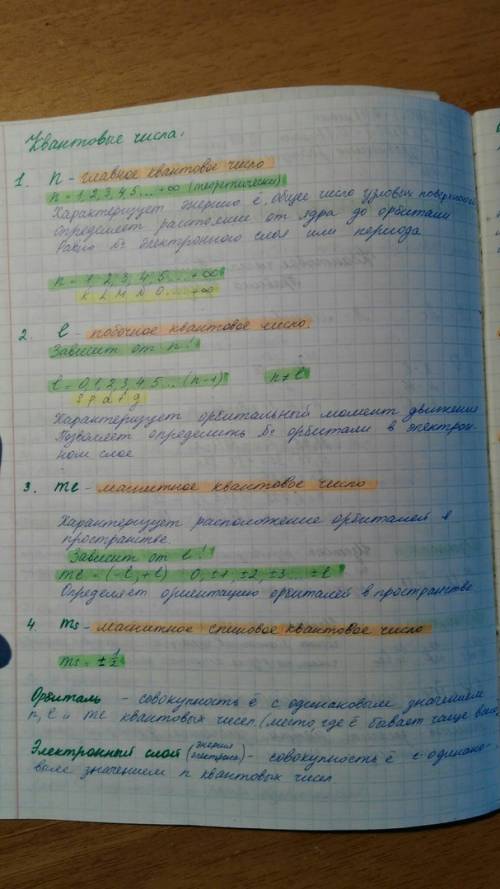 Квантовые числа:
1. n - главное квантовое число
n = 1, 2, 3, 4, 5 ... +∞ (теоретически)
Характеризует энергию ē, общее число узловых поверхностей
Определяет расстояние от ядра до орбитали
Равно № электронного слоя или периода
n = 1, 2, 3, 4, 5 ... +∞
K L M N O ... +∞
2. l - побочное квантовое число.
Зависит от n!
l = 0, 1, 2, 3, 4, 5 ... (n-1) n≠l
s p d f g
Характеризует орбитальный момент движения
Позволяет определить № орбитали в электрон-
ном слое
3. ml - магнитное квантовое число
Характеризует расположение орбиталей в
пространстве.
Зависит от l!
ml = (-l, +l) 0, ±1, ±2, ±3 ... ±l
Определяет ориентацию орбиталей в пространстве
4. ms - магнитное спиновое квантовое число
ms = ± 1/2
Орбиталь - совокупность ē с одинаковым значением
n, l и ml квантовых чисел. (место, где ē бывает чаще
Электронный слой (энергия электрона) - совокупность ē с одина-
вым значением n квантовых чисел